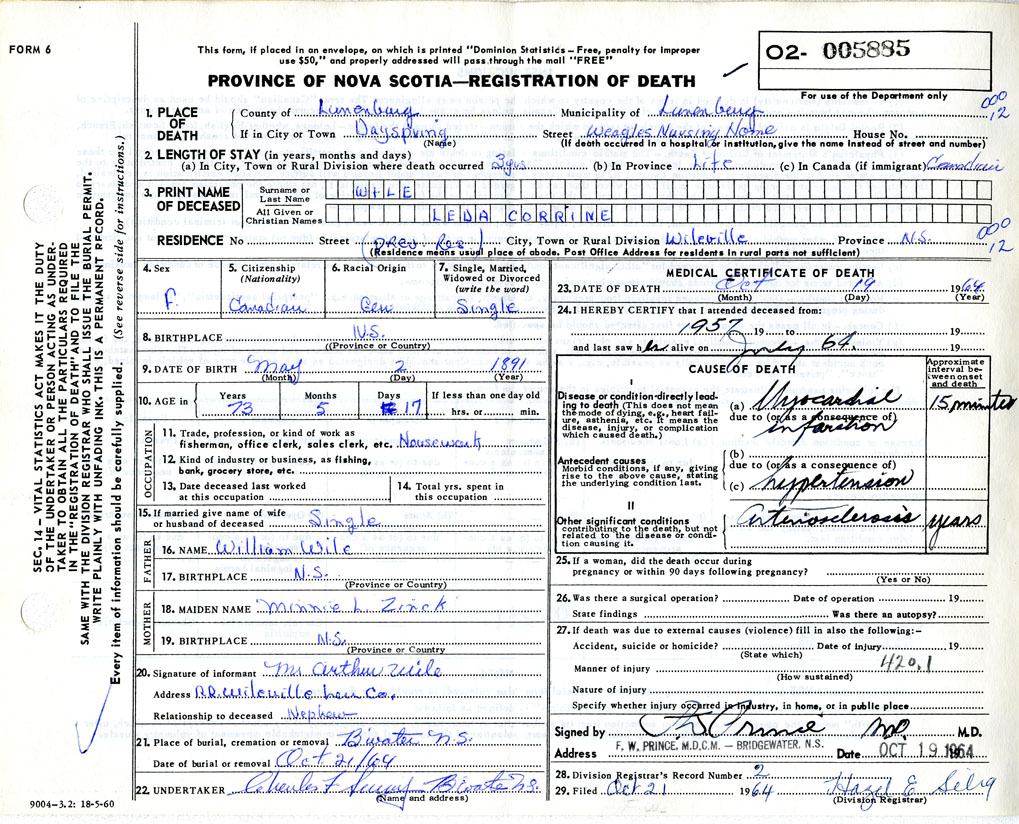 FORM 6
This form, if placed in an envelope, on which is printed "Dominion Statistics – Free, penalty for improper
use $50," and properly addressed will pass through the mail "FREE"
PROVINCE OF NOVA SCOTIA—REGISTRATION OF DEATH
O2- 005885
For use of the Department only
1. PLACE OF DEATH
County of Lunenburg Municipality of Lunenburg 000 12
If in City or Town Dayspring Street Weagles Nursing Home House No.
(Name) (If death occurred in a hospital or institution, give the name instead of street and number)
2. LENGTH OF STAY (in years, months and days)
(a) In City, Town or Rural Division where death occurred 3 yrs. (b) In Province Life (c) In Canada (if immigrant) Canadian
3. PRINT NAME OF DECEASED
Surname or Last Name WILE
All Given or Christian Names LEDA CORRINE
RESIDENCE No Street (Prev. Res.) City, Town or Rural Division Wileville Province N.S. 000 12
(Residence means usual place of abode. Post Office Address for residents in rural parts not sufficient)
4. Sex F.
5. Citizenship (Nationality) Canadian
6. Racial Origin Ger
7. Single, Married, Widowed or Divorced (write the word) Single
8. BIRTHPLACE N.S.
((Province or Country)
9. DATE OF BIRTH May 2 1891
(Month) (Day) (Year)
10. AGE in Years 73 Months 5 Days 17 If less than one day old hrs. or min.
OCCUPATION
11. Trade, profession, or kind of work as
fisherman, office clerk, sales clerk, etc. Housework
12. Kind of industry or business, as fishing,
bank, grocery store, etc.
13. Date deceased last worked at this occupation
14. Total yrs. spent in this occupation
15. If married give name of wife
or husband of deceased Single
FATHER
16. NAME William Wile
17. BIRTHPLACE N.S.
(Province or Country)
MOTHER
18. MAIDEN NAME Minnie L. Zinck
19. BIRTHPLACE N.S.
(Province or Country
20. Signature of informant Mr Arthur Wile
Address R.R. Wileville Lun Co.
Relationship to deceased Nephew
21. Place of burial, cremation or removal B'water N.S.
Date of burial or removal Oct 21/64
22. UNDERTAKER Charles F B'water N.S.
(Name and address)
MEDICAL CERTIFICATE OF DEATH
23. DATE OF DEATH Oct 19 1964
(Month) (Day) (Year)
24. I HEREBY CERTIFY that I attended deceased from:
1957 19 to 19
and last saw her alive on July 64. 19
CAUSE OF DEATH
Approximate interval between onset and death
I
Disease or condition directly leading to death (This does not mean the mode of dying, e.g., heart failure, asthenia, etc. It means the disease, injury, or complication which caused death.)
(a) Myocardial 15 minutes
due to (or as a consequence of)
infarction
Antecedent causes
Morbid conditions, if any, giving rise to the above cause, stating the underlying condition last.
(b)
due to (or as a consequence of)
(c) hypertension
II
Other significant conditions
contributing to the death, but not related to the disease or condition causing it.
Arteriosclerosis years
25. If a woman, did the death occur during
pregnancy or within 90 days following pregnancy?
(Yes or No)
26. Was there a surgical operation? Date of operation 19
State findings Was there an autopsy?
27. If death was due to external causes (violence) fill in also the following:–
Accident, suicide or homicide? Date of injury 19
(State which)
Manner of injury 420.1
(How sustained)
Nature of injury
Specify whether injury occurred in industry, in home, or in public place
Signed by F W Prince MD. M.D.
Address F. W. PRINCE, M.D.C.M. – BRIDGEWATER, N.S. Date OCT 19 1964
28. Division Registrar's Record Number 2
29. Filed Oct 21 1964 Hazel E Selig
(Division Registrar)
SEC. 14 – VITAL STATISTICS ACT MAKES IT THE DUTY
OF THE UNDERTAKER OR PERSON ACTING AS UNDER-
TAKER TO OBTAIN ALL THE PARTICULARS REQUIRED
IN THE "REGISTRATION OF DEATH" AND TO FILE THE
SAME WITH THE DIVISION REGISTRAR WHO SHALL ISSUE THE BURIAL PERMIT.
WRITE PLAINLY WITH UNFADING INK. THIS IS A PERMANENT RECORD.
Every item of information should be carefully supplied. (See reverse side for instructions.)
9004-3.2: 18-5-60